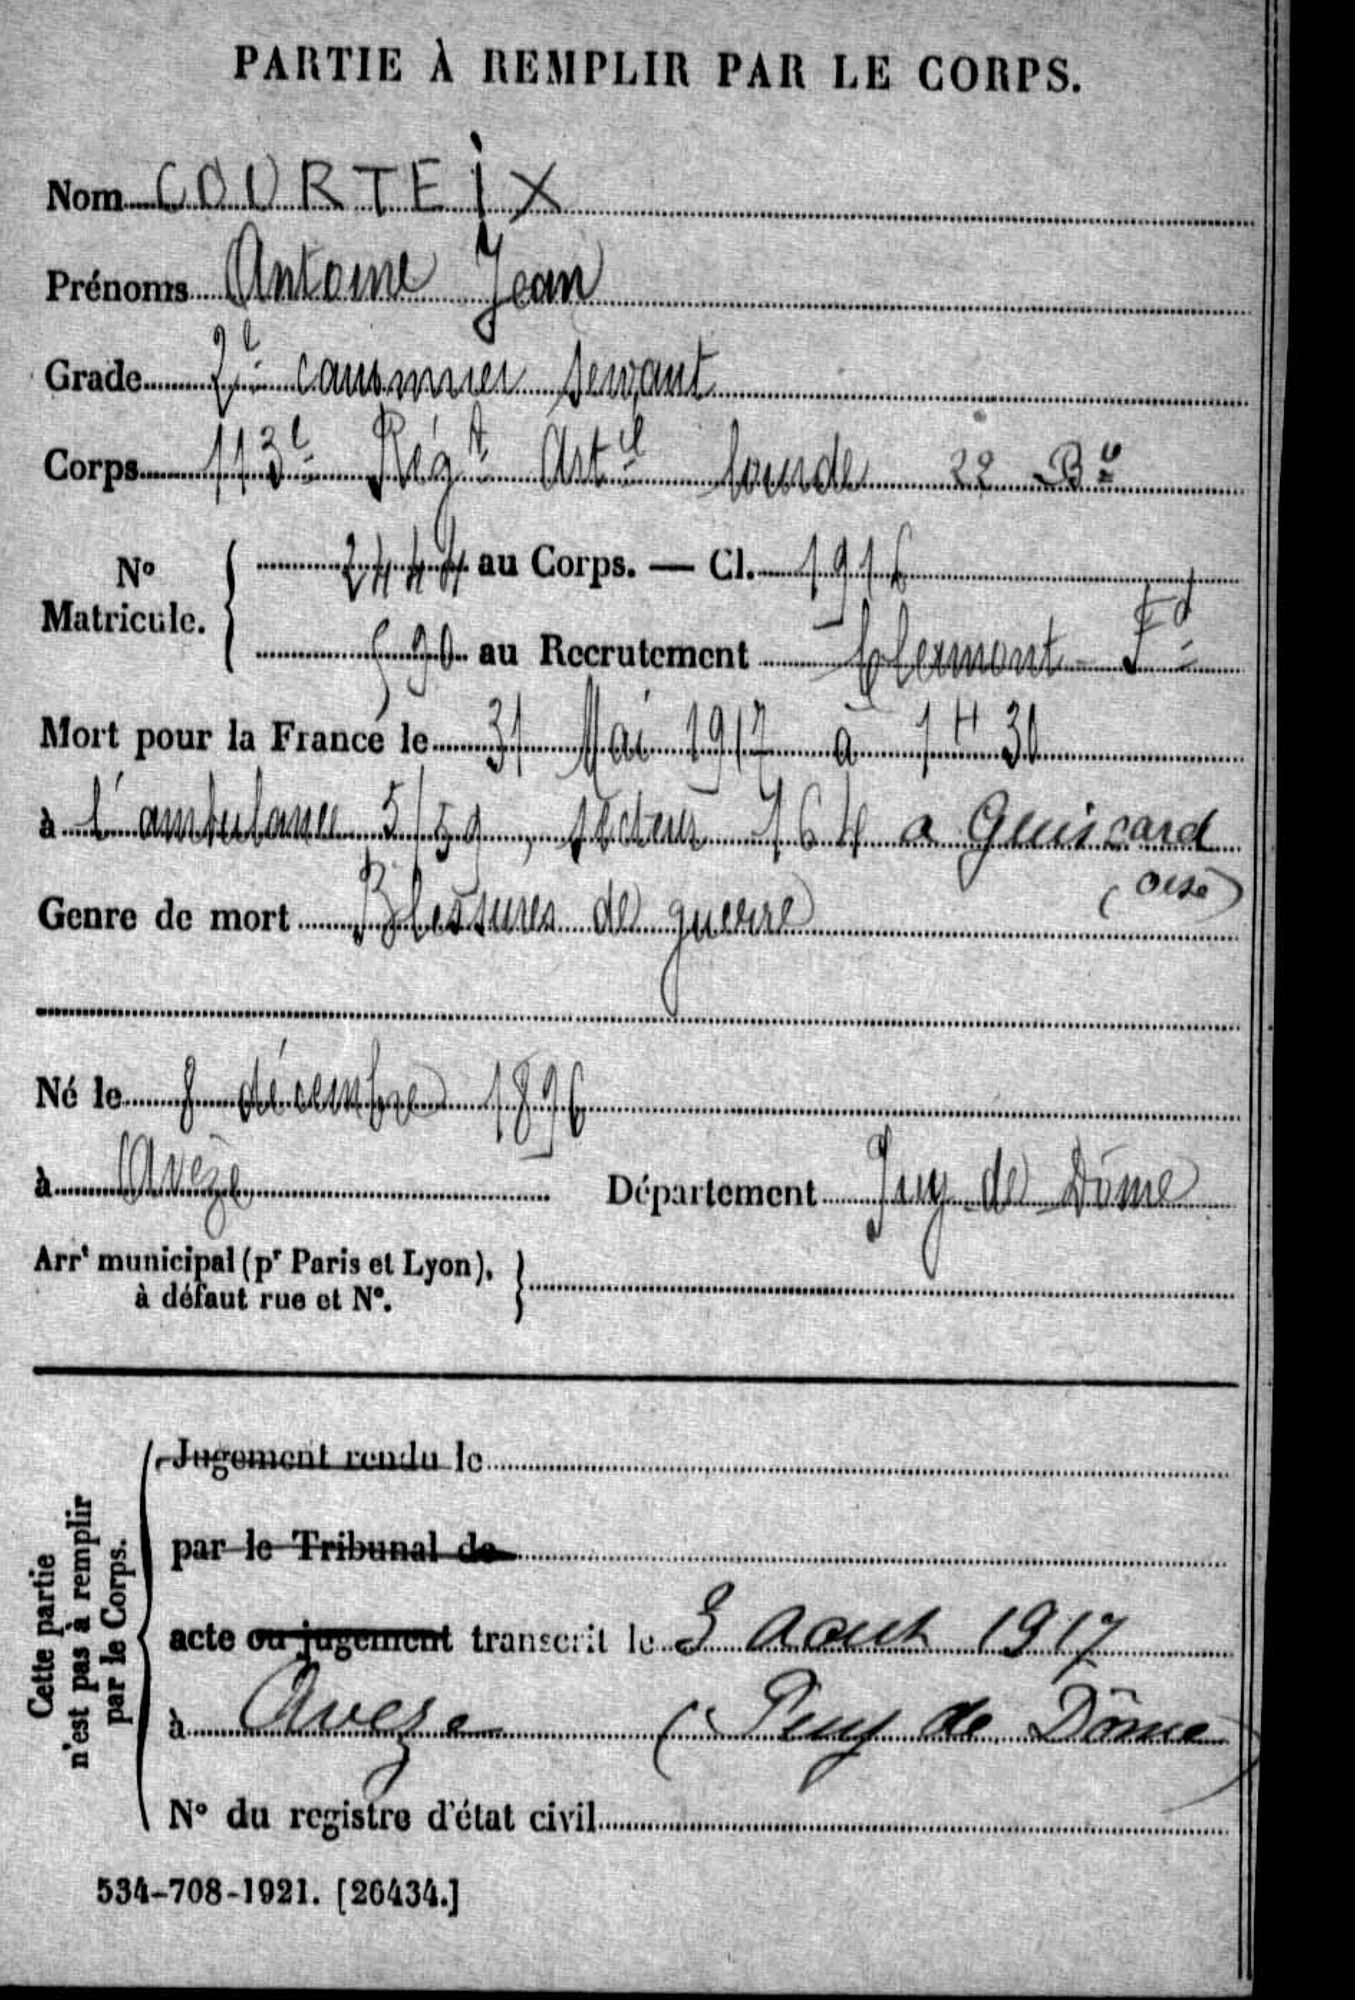 PARTIE À REMPLIR PAR LE CORPS.
Nom COURTEiX
Prénoms Antoine Jean
Grade 2e canonnier servant
Corps 113e Régt Artie lourde 22 Bie
No Matricule. { 2444 au Corps. — Cl. 1916
590 au Recrutement Clermont-Fd
Mort pour la France le 31 Mai 1917 à 1H30
à l'ambulance 5/59, secteur 164 a Guiscard
(Oise)
Genre de mort Blessures de guerre
Né le 8 décembre 1896
à Avèze Département Puy-de Dôme
Arrt municipal (pr Paris et Lyon),
à défaut rue et No.
Cette partie
n'est pas à remplir
par le Corps.
Jugement rendu le
par le Tribunal de
acte ou jugement transcrit le 3 Aout 1917
à Aveze (Puy de Dôme)
No du registre d'état civil
534-708-1921. [26434.]